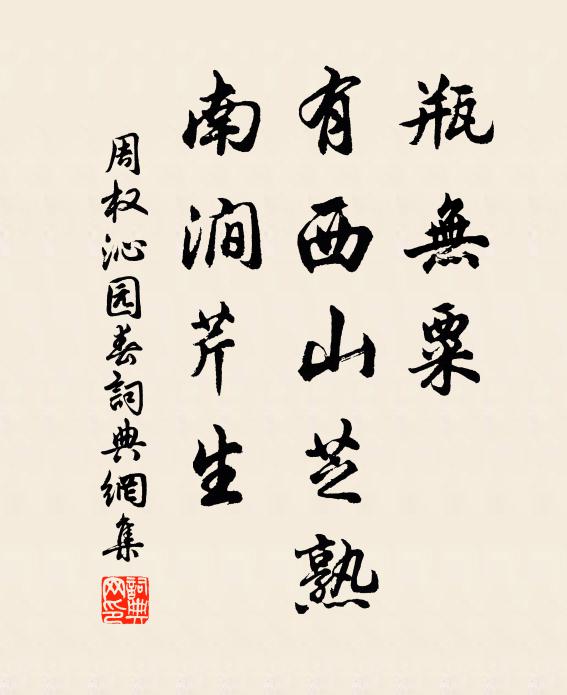 瓶無粟
有西山芝熟
南澗芹生
周权沁园春詞典網集
詞典
网印